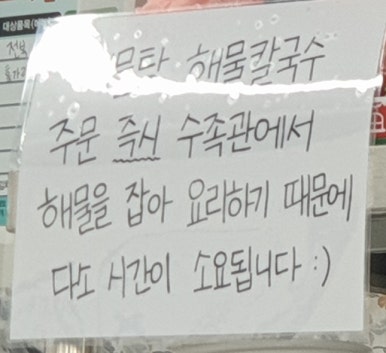 대상품목
해물칼국수
주문 즉시 수족관에서
해물을 잡아 요리하기 때문에
다소 시간이 소요됩니다 :)